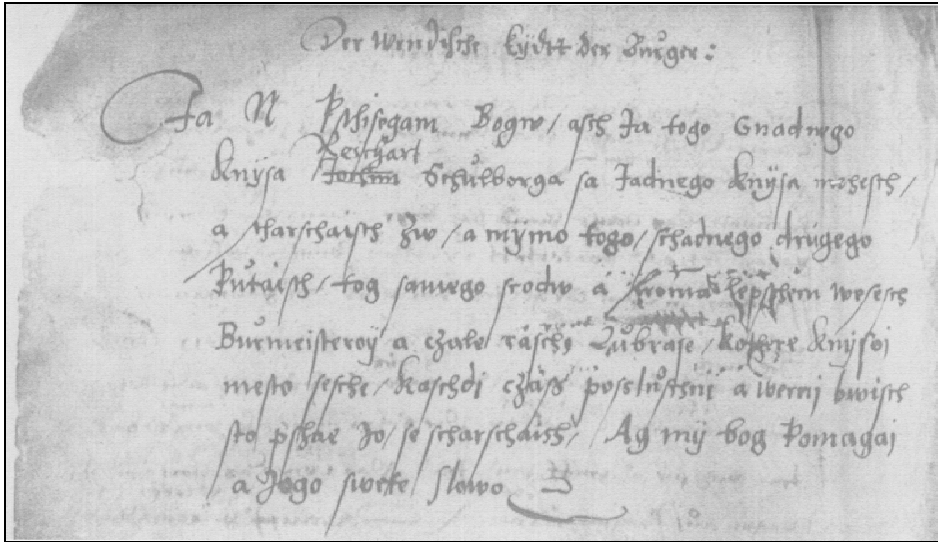 Der Wendische Eÿdtt der Bürger:
Ja N Pschisegam Bogw, asch Ja togo Gnadnego
Reichart
Knÿsa Jochim Schulborga sa Jadnego Knÿsa mehesch,
a scharschaisch Zw, a mymo togo, schadnego drugego
Putaisch, tog samego scodw a lepschem wesesch
Burmeisteroÿ a czale räschi Lubrase, Kothere Knÿsoi
mesto sesche, Kaschdi cžäss posslüschni a wernj bwisch
sto pschae Jo, se scharschaisch, Ag mÿ bog Pomagai
a Jogo swete slowo